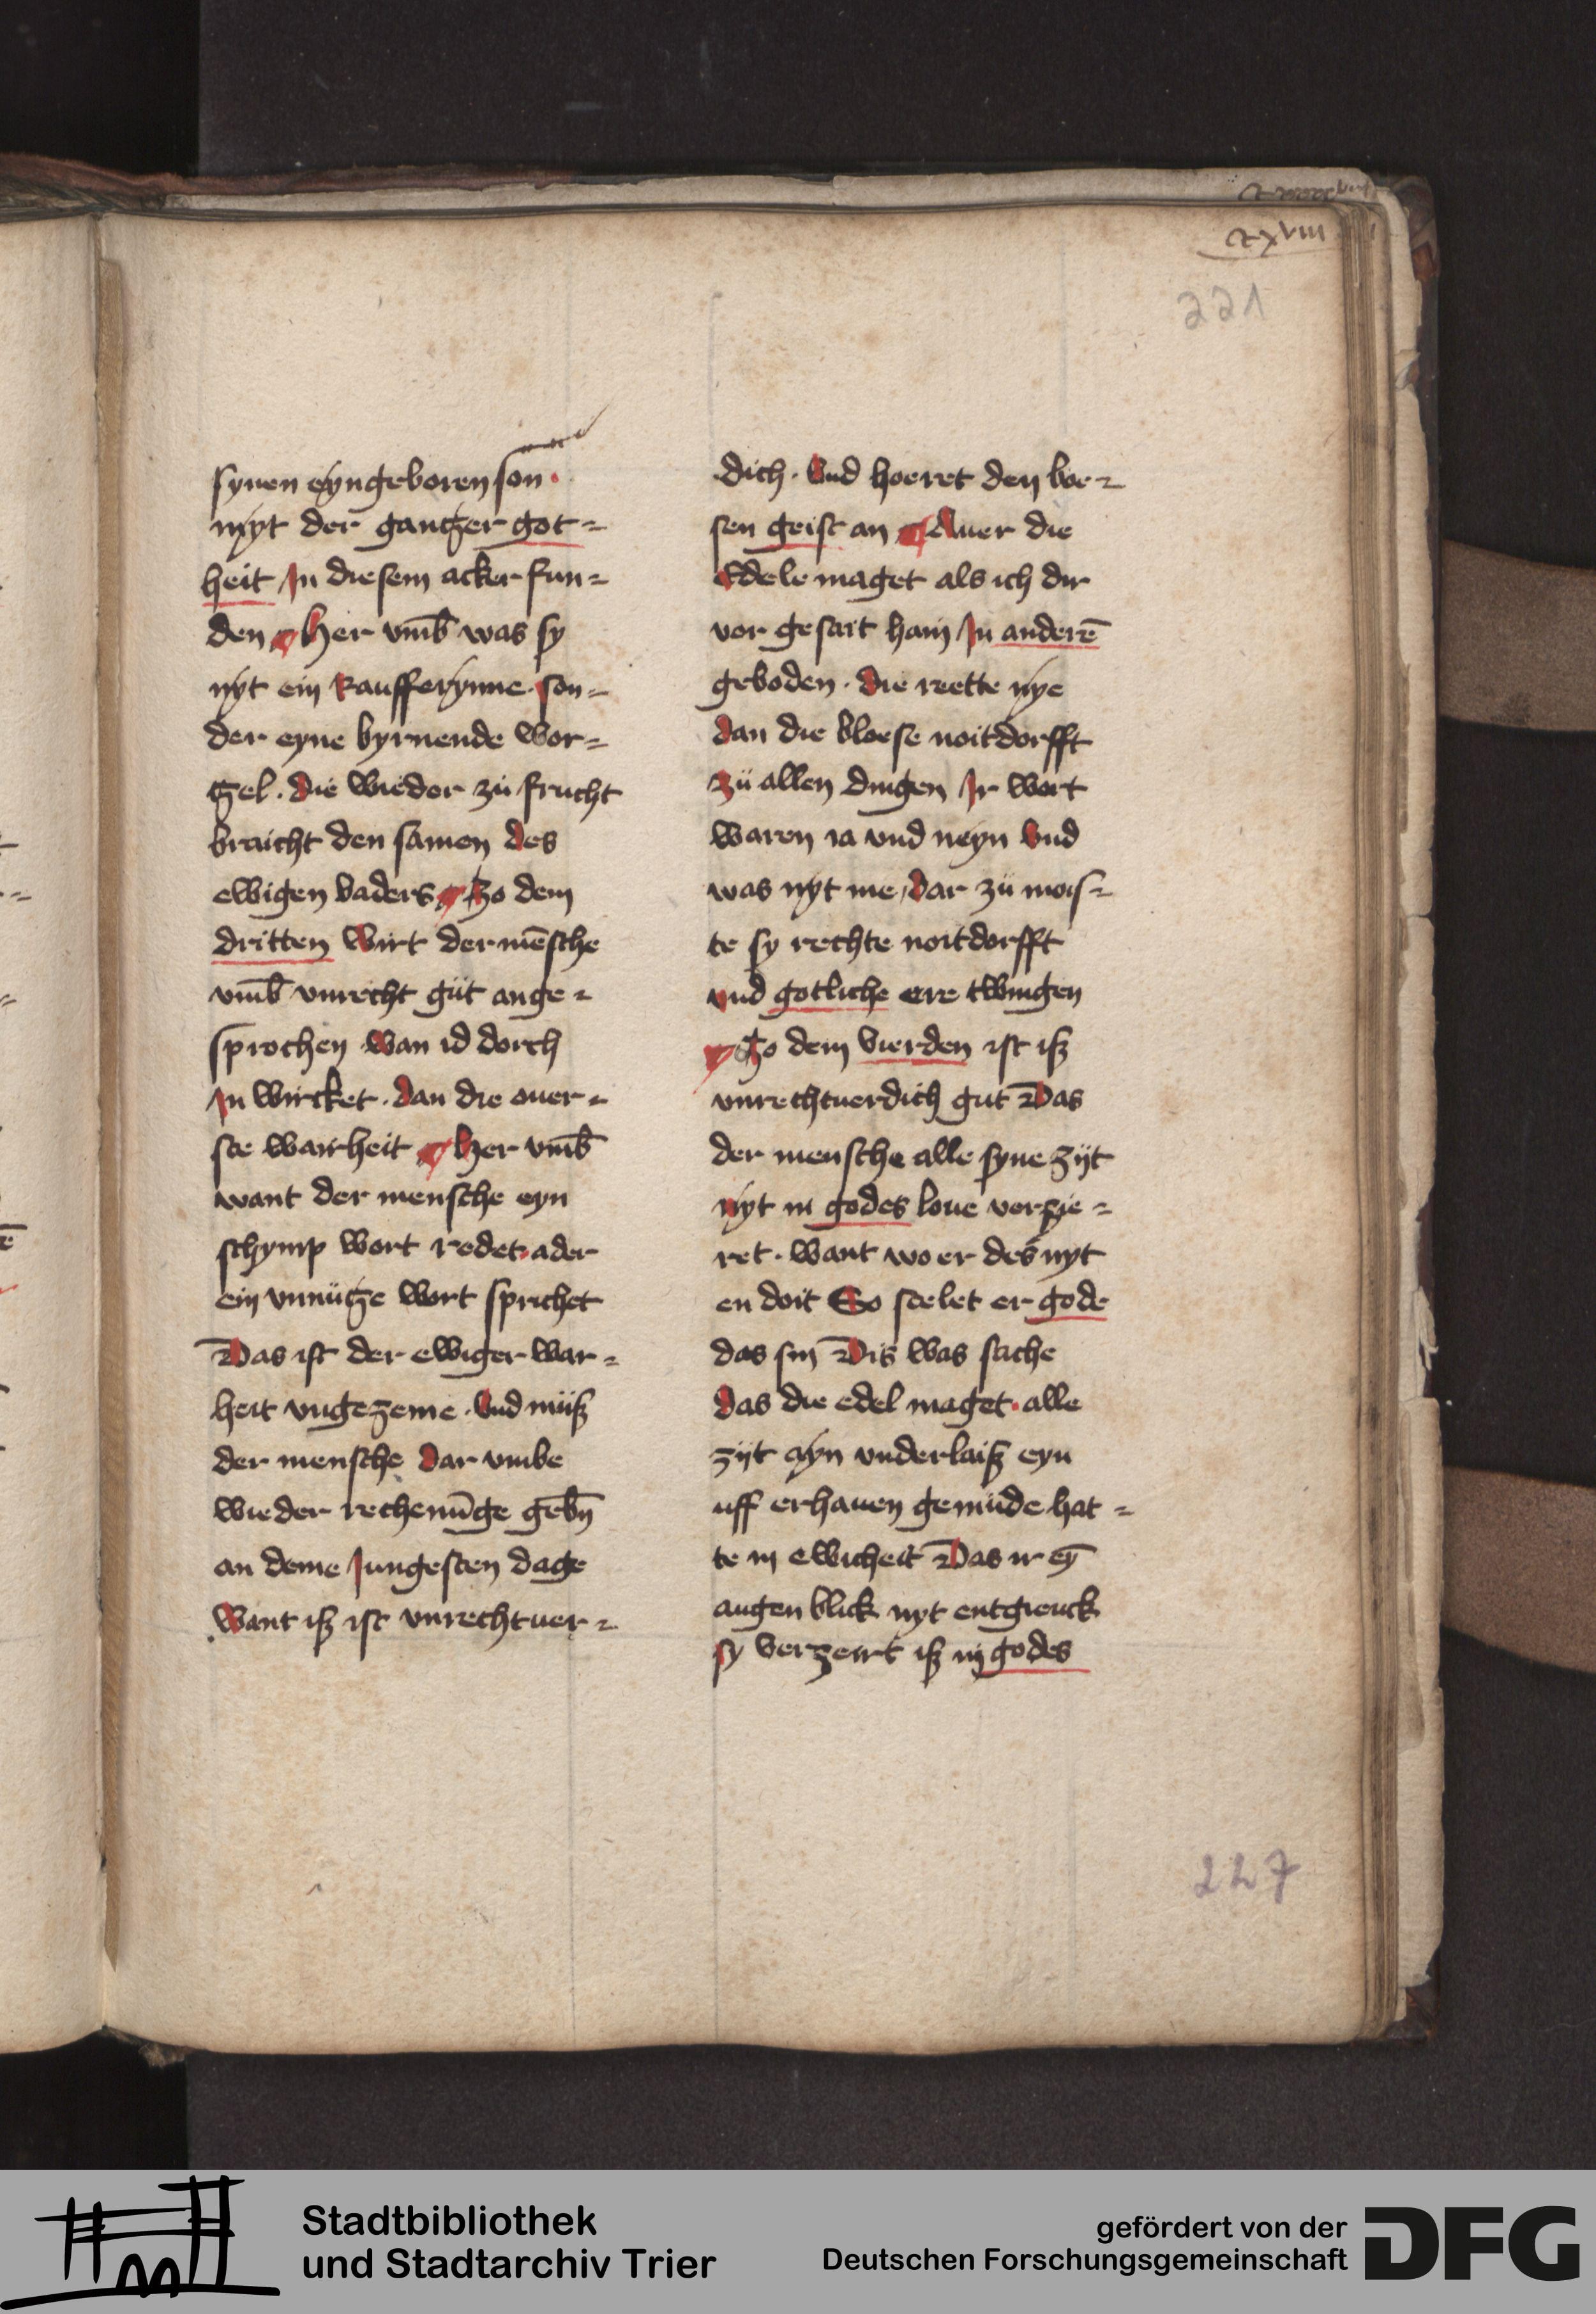 ccxviii
221
synen eyngeboren son·
myt der gantzer got=
heit In diesem acker fun=
den her vmb̄ was sy
nyt ein kaufferynne· son=
der eyne byrnende wor=
tzel· die wieder zü frucht
braicht den samen des
ewigen vaders tzo dem
dritten wirt der mēsche
vmb̄ vnrecht güt ange=
sprochen wan id dorch
In wircket· dan die ouer=
ste wairheit her vmb̄
want der mensche eyn
schymp wort redet· ader
ein vnnütze wort sprichet
Das ist der ewiger war=
heit vngezeme· vnd müß
der mensche dar vmbe
wieder rechenūge gebn̄
an deme Jungesten dage
want iß ist vnrechtuer=
dich· vnd hoeret den boe=
sen geist an Auer die
Edele maget als ich dir
vor gesait hain In anderē
geboden· die reette nye
dan die bloese noitdorfft
zü allen dingen Ir wort
waren ia vnd neyn vnd
was nyt me, dar zü mois=
te sy rechte noitdorfft
vnd gotliche ere twingen
tzo dem vierden ist iß
vnrechtuerdich gut Das
der mensche alle syne zijt
nyt in godes loue verzie=
ret· want wo er des nyt
en doit So stelet er gode
das sin Dis was sache
das die edel maget· alle
zijt ayn vnderlaiß eyn
uff erhauen gemüde hat=
te in ewicheit Das ir eȳ
augen blick nyt entgienck
sy verzeirt iß in godes
227
Stadtbibliothek
und Stadtarchiv Trier
gefördert von der
Deutschen Forschungsgemeinschaft
DFG